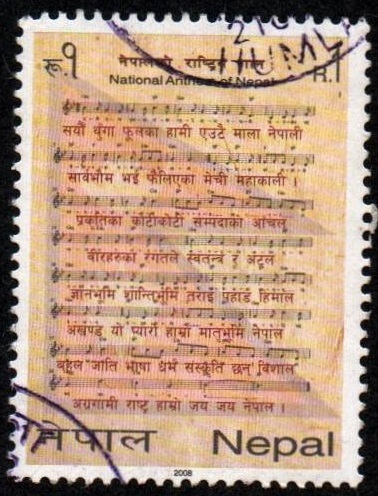 रू.१ नेपालको राष्ट्रिय गान R.1
National Anthem of Nepal
सयौं थुंगा फूलका हामी एउटै माला नेपाली
सार्वभौम भई फैलिएका मेची महाकाली ।
प्रकृतिका कोटीकोटी सम्पदाको आंचल
बीरहरुका रगतले स्वतन्त्र र अटल
ज्ञानभूमि शान्तिभूमि तराई पहाड हिमाल
अखण्ड यो प्यारो हाम्रो मातृभूमि नेपाल
बहुल जाति भाषा धर्म संस्कृति छन् विशाल
अग्रगामी राष्ट्र हाम्रो जय जय नेपाल ।
नेपाल Nepal
2008